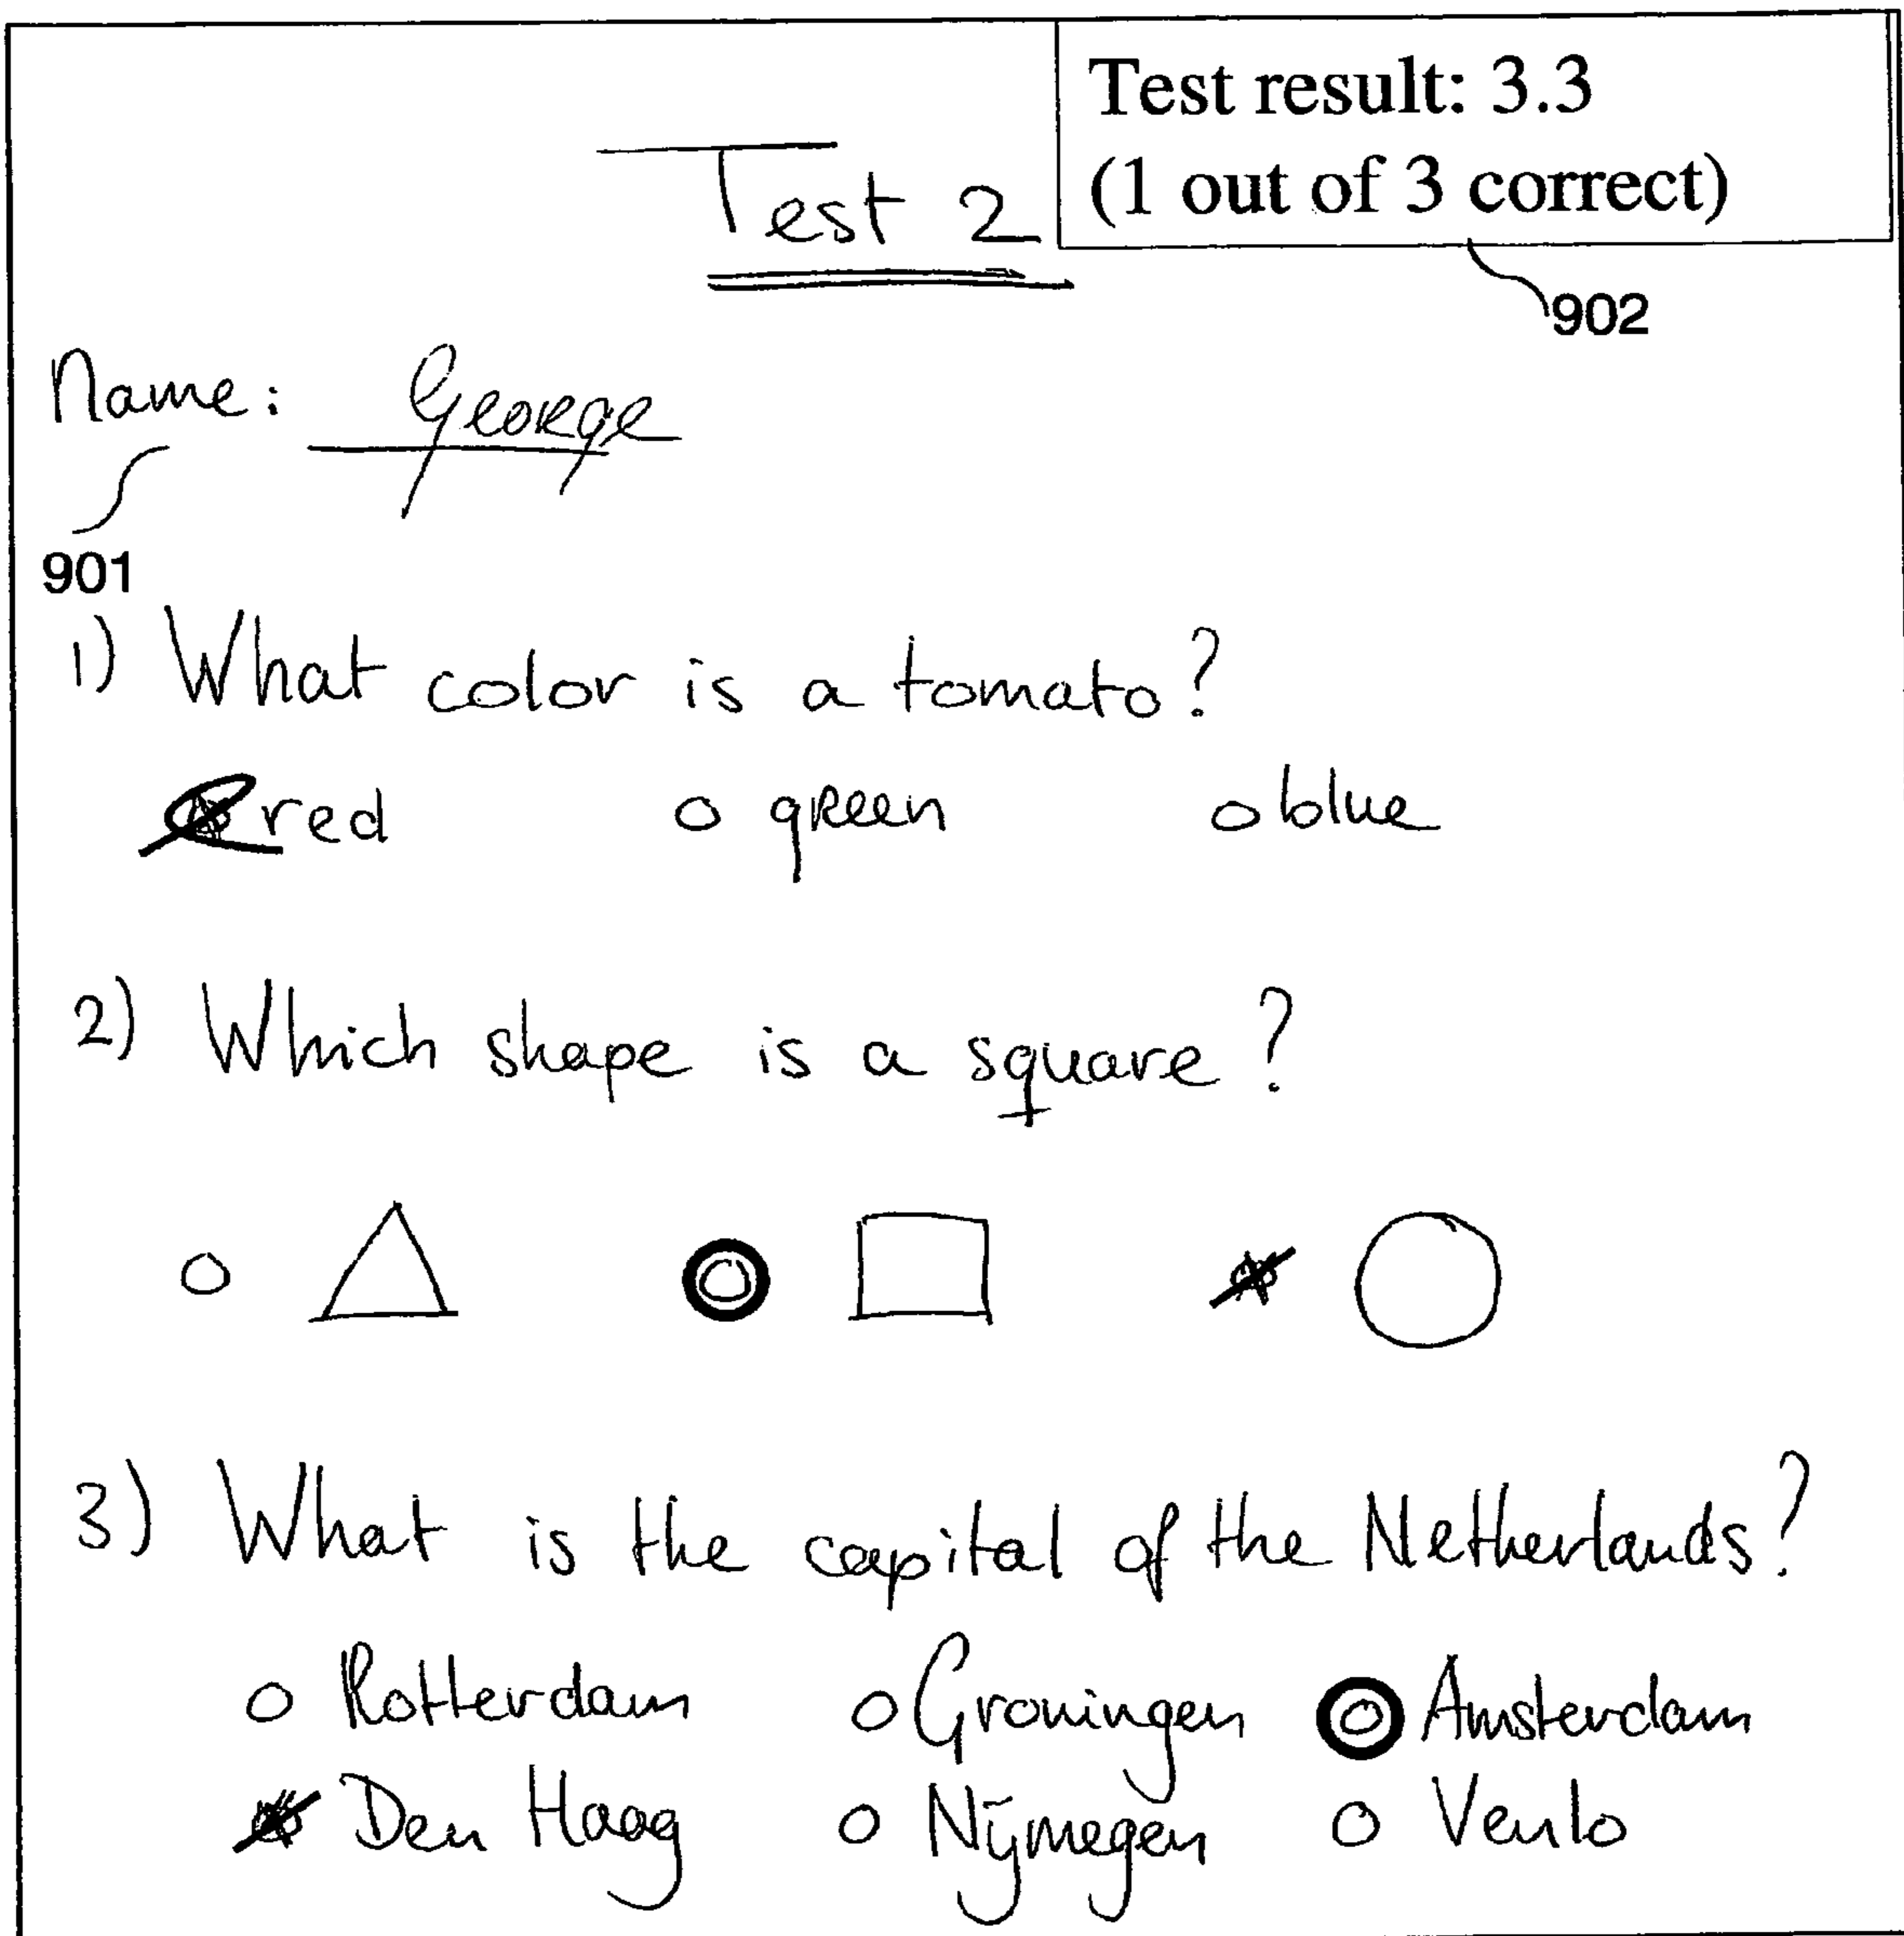 Test result: 3.3
(1 out of 3 correct)
Test 2
902
Name: George
901
1) What color is a tomato?
red green blue
2) Which shape is a square?
3) What is the capital of the Netherlands?
Rotterdam Groningen Amsterdam
Den Haag Nijmegen Venlo